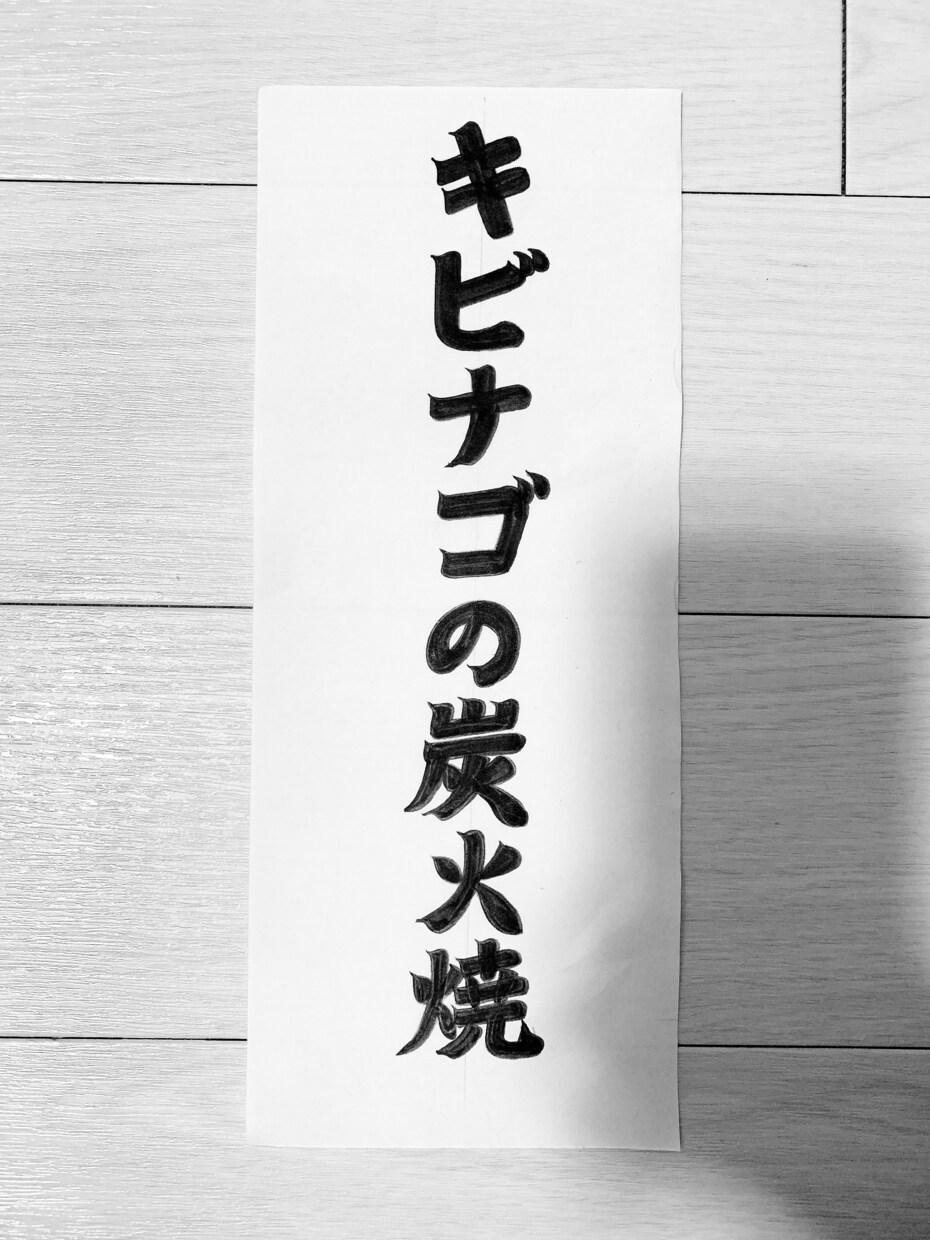 キビナゴの炭火焼